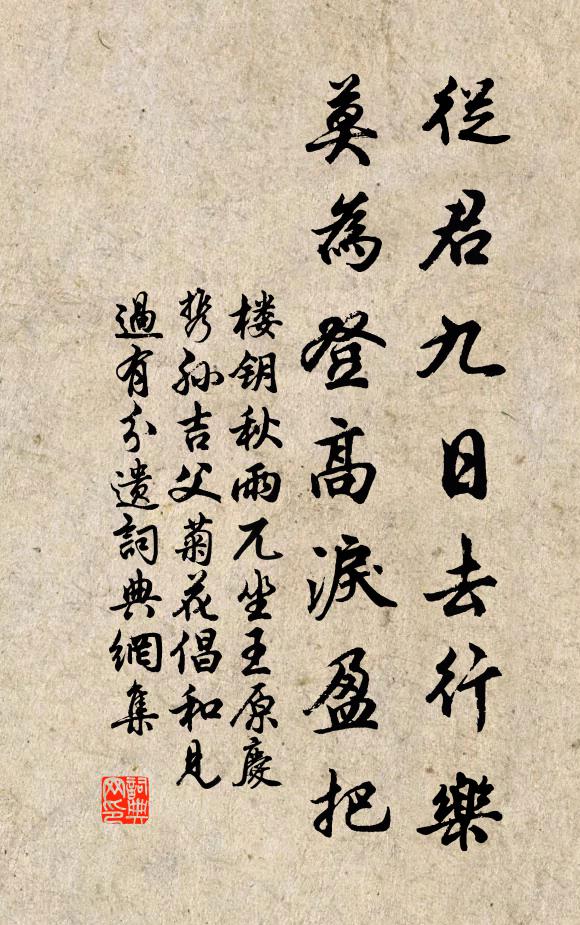 從君九日去行樂
莫為登高淚盈把
楼钥秋雨兀坐王原慶
携孙吉父菊花倡和见
過有分遺詞典網集
詞典网印